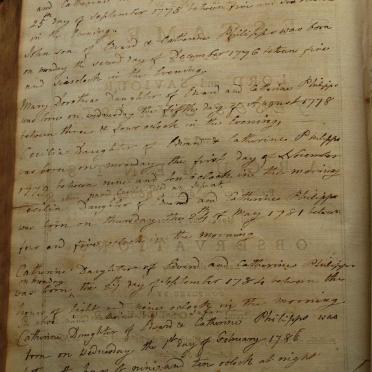 and Catharine
25th Day of September 1775 between five and
in the Evening.
John son of Beard & Catherine Philipps was born
on monday the second day of December 1776 between five
and six oclock in the Evening.
Mary Dorothea Daughter of Beard and Catherine Philipps
was born on wednesday the fifth day of August 1778
between three & four oclock in the Evening,
Cecilia Daughter of Beard & Catherine Philipps
was born on monday the first Day of November
between nine and ten oclock in the morning
Cecilia Daughter of Beard and Catherine Philipps
was born on thursday the 24 of May 1781 between
four and five oclock in the morning
Catherine Daughter of Beard and Catherine Philipps
was born on monday the day of September 1784 between the
hours of eight and nine oclock in the morning
Catherine Daughter of Beard & Catherine Philipps was
born on Wednesday the 1st Day of February 1786
nine and ten oclock at night
LORD
SAVIOUR
OBSERVATIONS